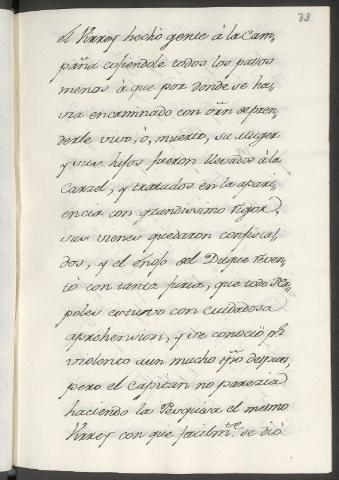 33
el Xaref hecho gente à la Cam,,
paña cosiendole todos los pasos
menos à que por donde se ha,,
via encaminado con orñ. de pren,,
derle vivo, ò, muerto, su Muger
y sus hijos fueron llevados à la
Carzel, y tratados en la apari,,
encia con grandissimo rigor,
sus vienes quedaron confiscal,,
dos, y el enojo del Duque reven,,
tò con tanta furia, que todo Na,,
poles estuvo con cuidadosa
aprehension, y se conociò pr.
violento aun mucho tpõ despues,
pero el Capitan no parezia
haciendo la Pesquisa el mesmo
Xaref con que facilmte. se diò